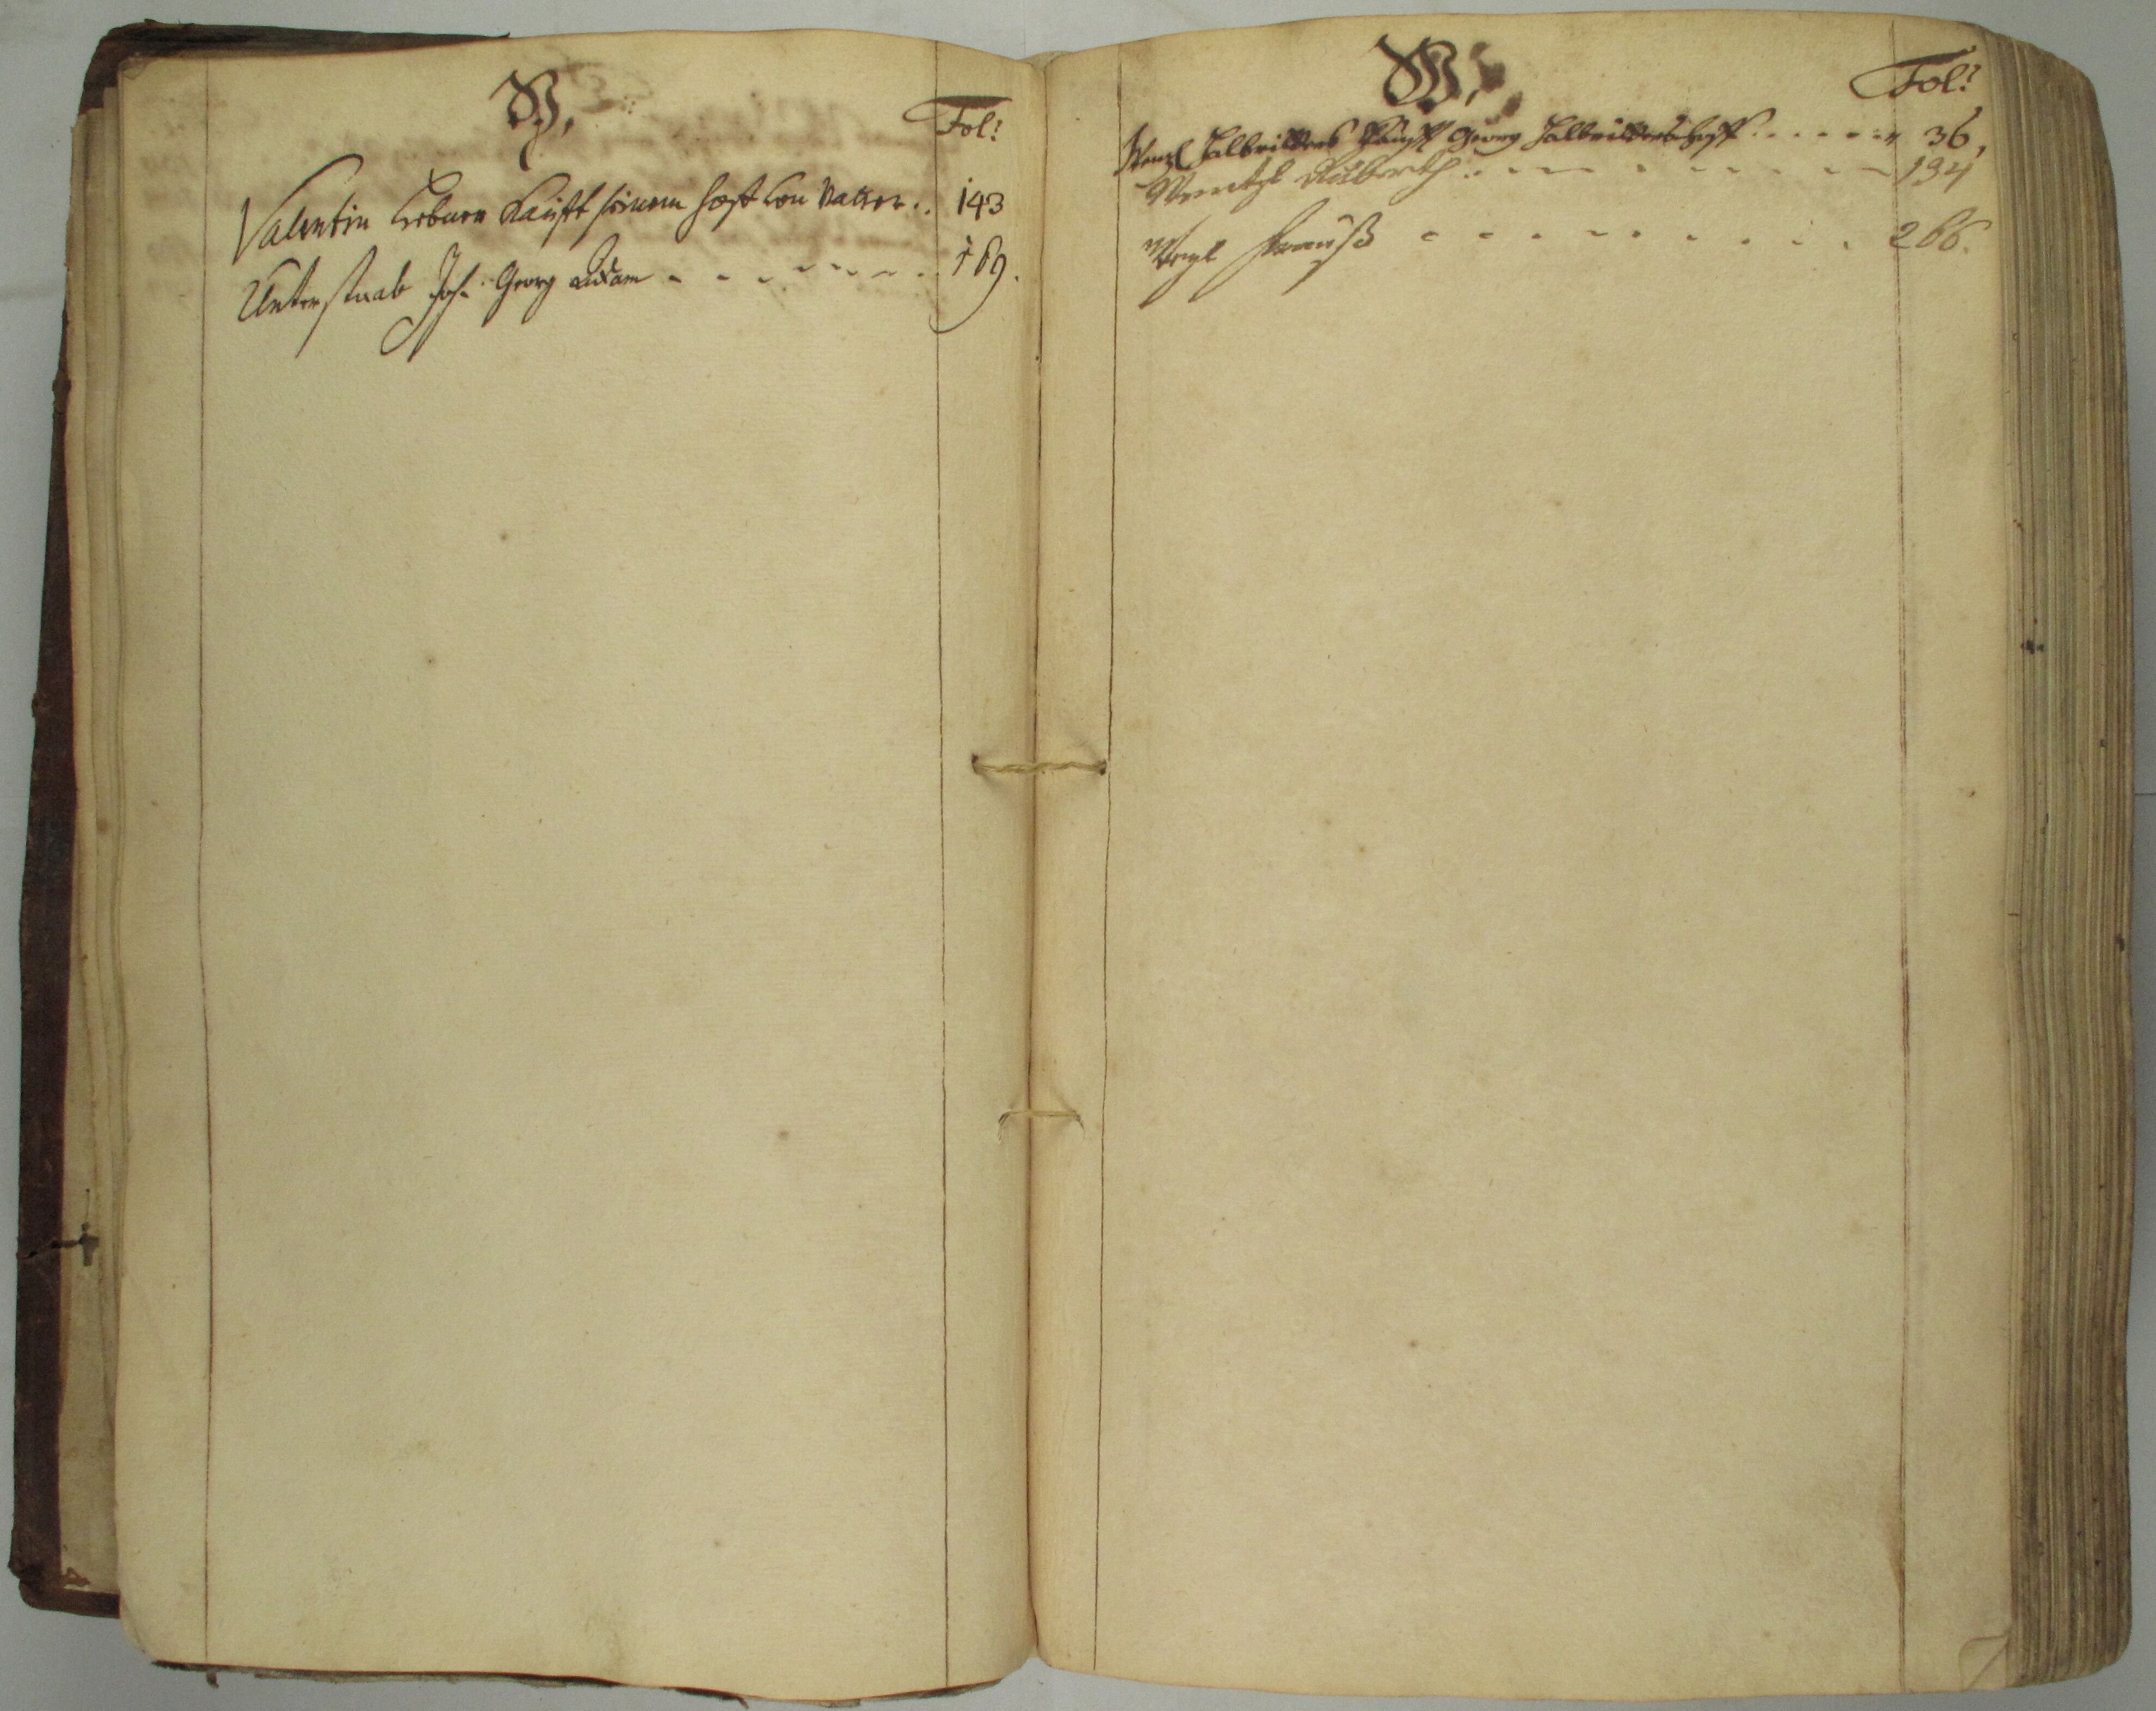 V,
Fol:
Valentin Kaufft seinem Hoff von Vatter.. 143
Unterstaab Joh. Georg Adam - - - - - - - - 169.
W,
Fol:
Wenzl Halbritters Kaufft Georg Halbritters Hoff . . . . . . . 36,
Wentzl - - - - - - - - 194
Wenzl - - - - - - - - - - 266.